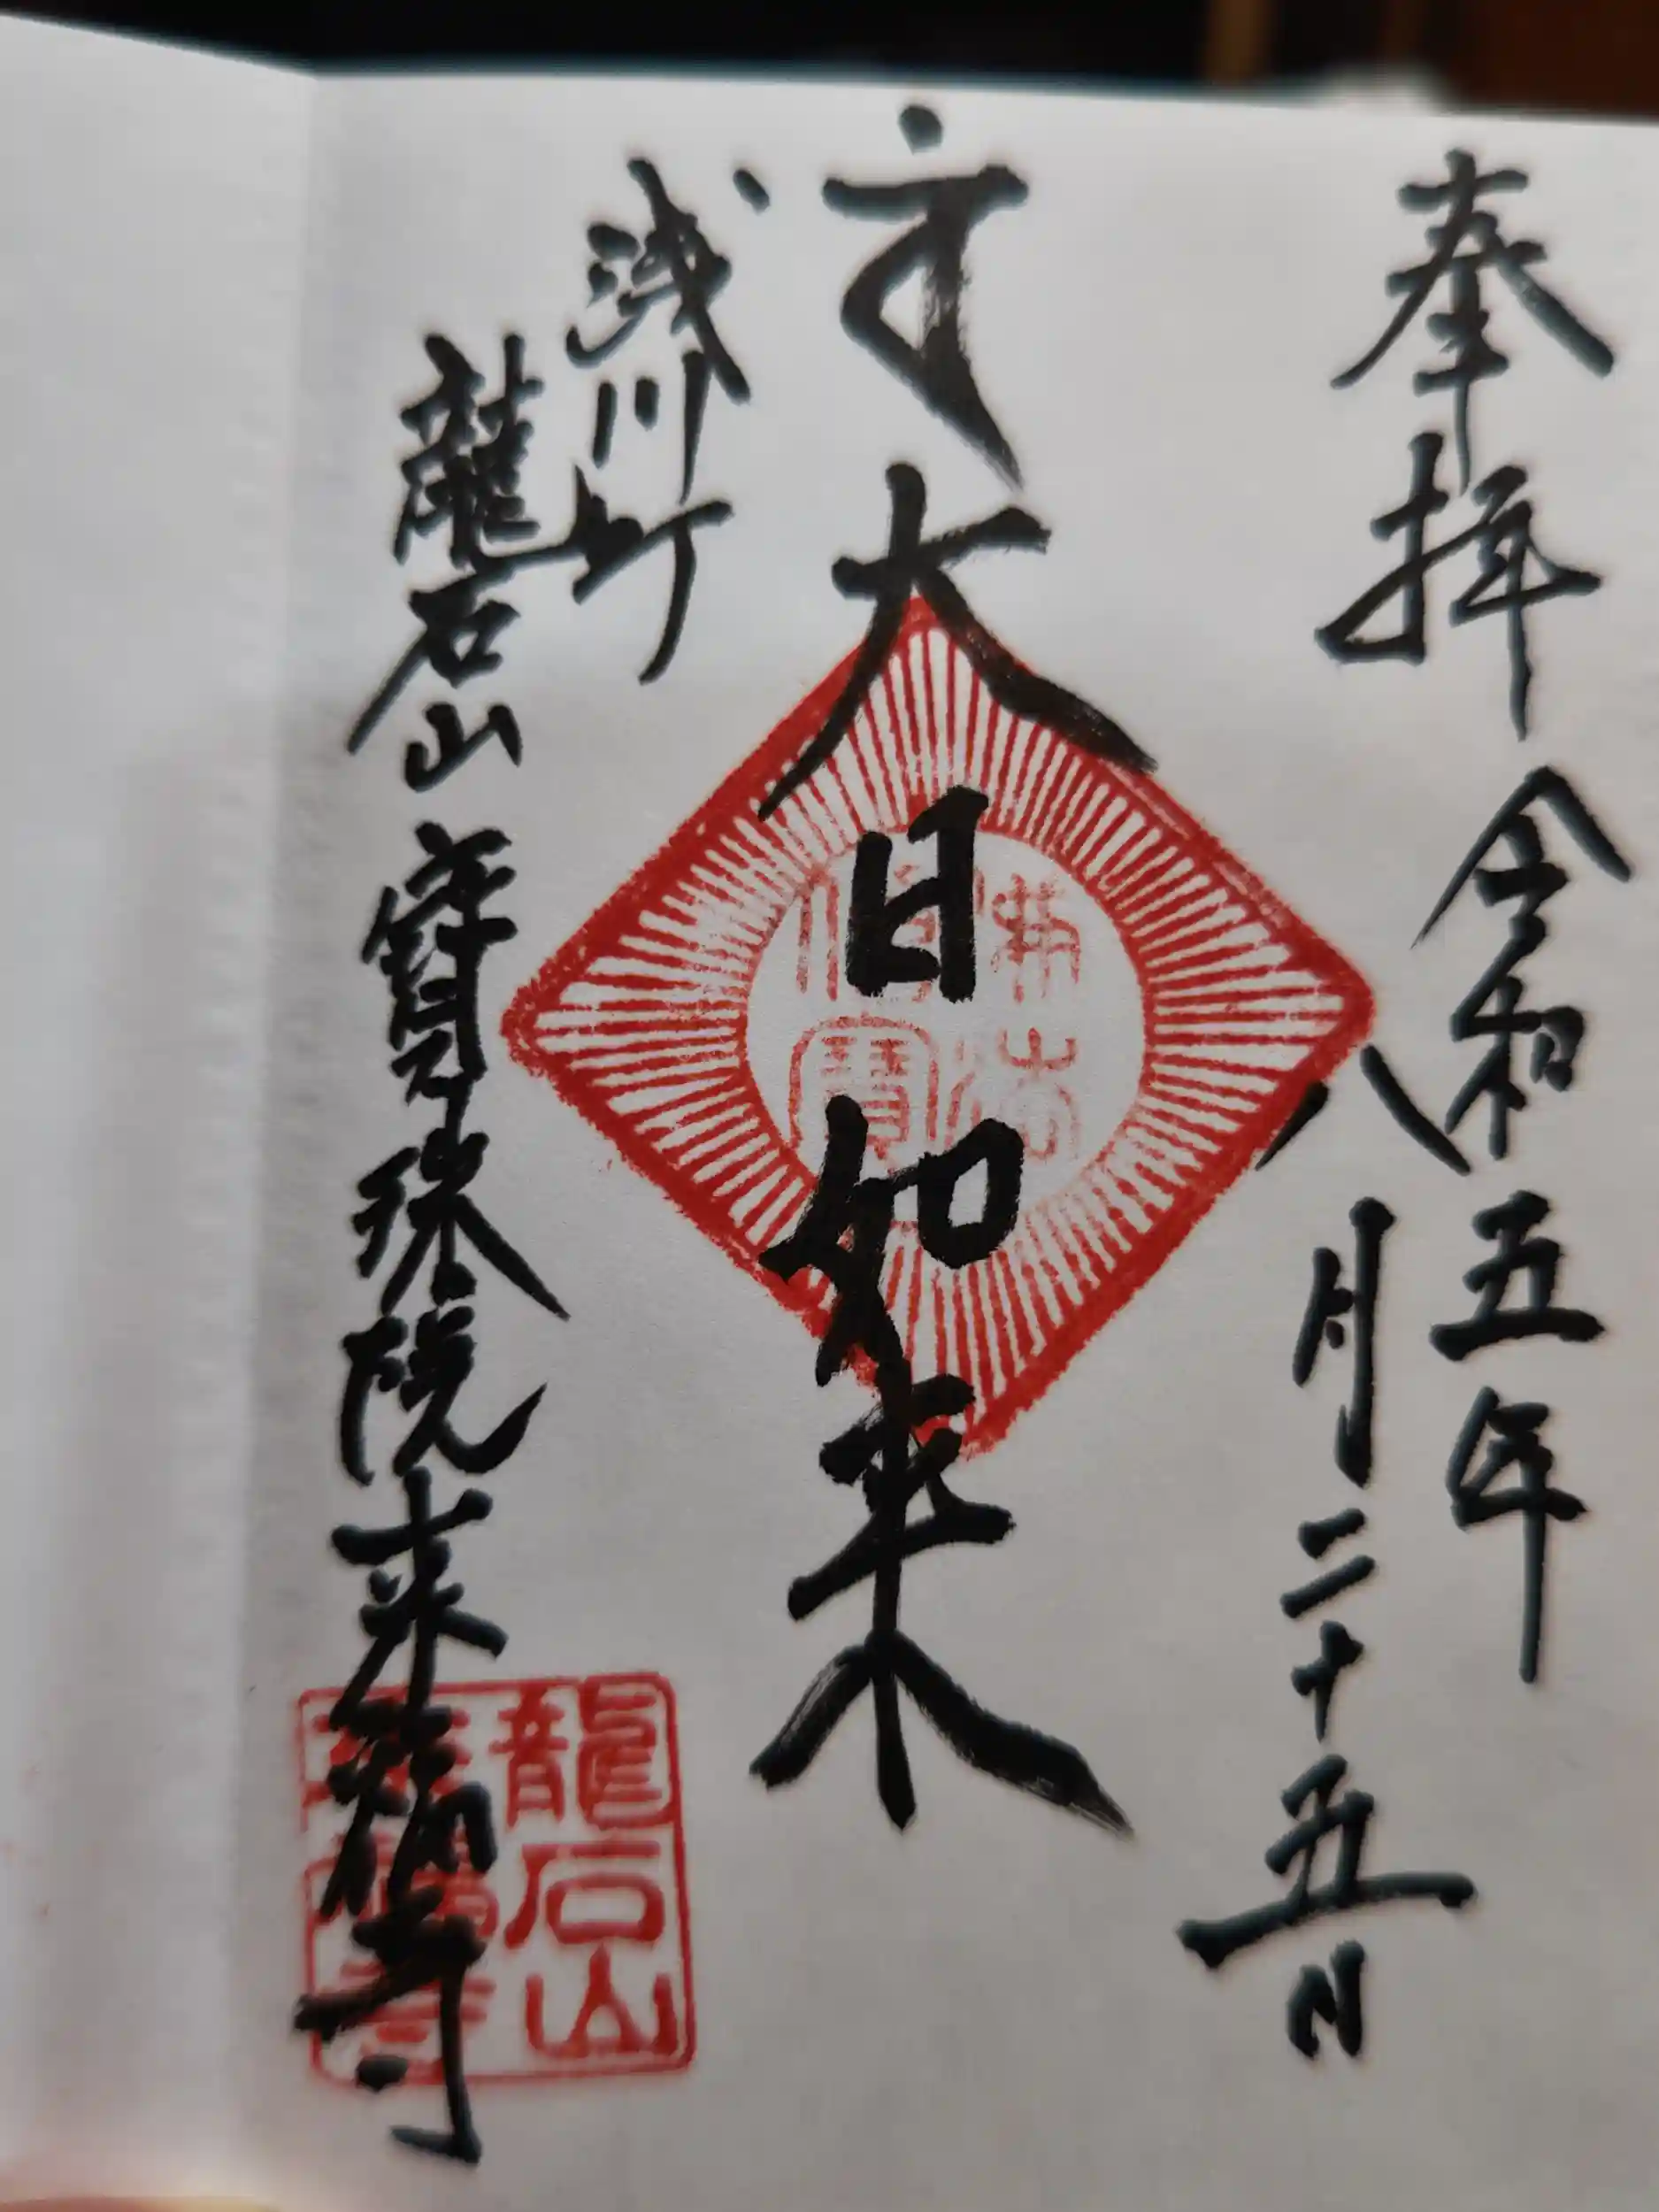 奉拝 令和五年
八月二十五日
大日如来
浅川町
龍石山 寳珠院 来福寺
佛法
僧寳
龍石山
来福寺